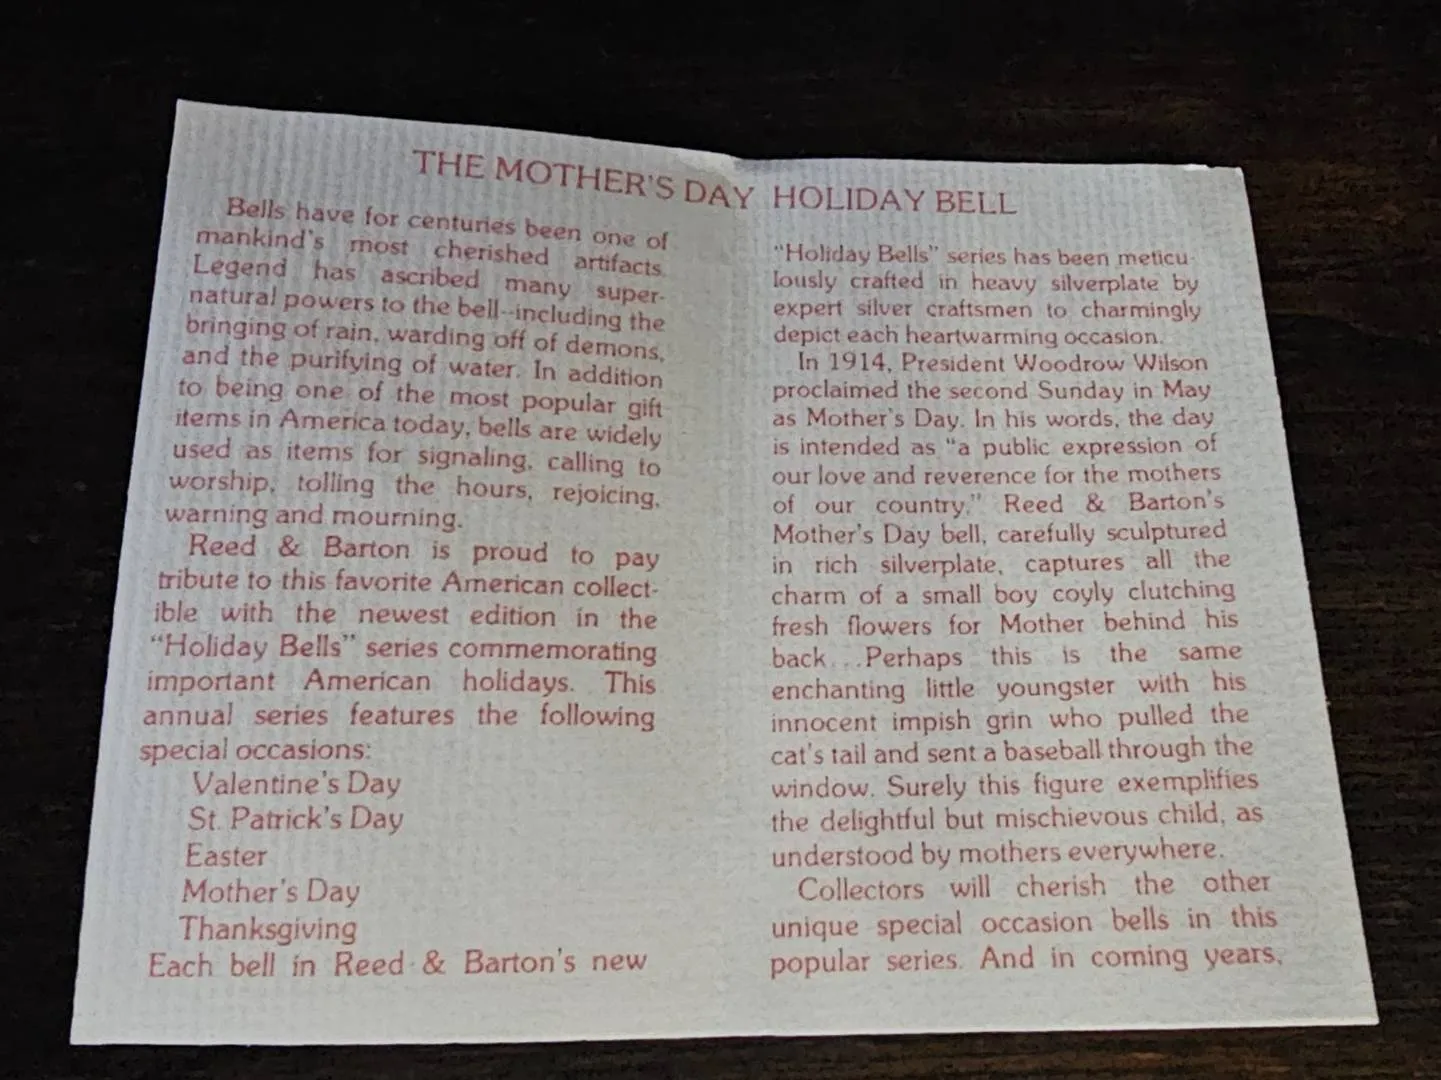 THE MOTHER'S DAY HOLIDAY BELL
Bells have for centuries been one of
mankind's most cherished artifacts.
Legend has ascribed many super-
natural powers to the bell--including the
bringing of rain, warding off of demons,
and the purifying of water. In addition
to being one of the most popular gift
items in America today, bells are widely
used as items for signaling, calling to
worship, tolling the hours, rejoicing,
warning and mourning.
Reed & Barton is proud to pay
tribute to this favorite American collect-
ible with the newest edition in the
"Holiday Bells" series commemorating
important American holidays. This
annual series features the following
special occasions:
Valentine's Day
St. Patrick's Day
Easter
Mother's Day
Thanksgiving
Each bell in Reed & Barton's new
"Holiday Bells" series has been meticu-
lously crafted in heavy silverplate by
expert silver craftsmen to charmingly
depict each heartwarming occasion.
In 1914, President Woodrow Wilson
proclaimed the second Sunday in May
as Mother's Day. In his words, the day
is intended as "a public expression of
our love and reverence for the mothers
of our country." Reed & Barton's
Mother's Day bell, carefully sculptured
in rich silverplate, captures all the
charm of a small boy coyly clutching
fresh flowers for Mother behind his
back...Perhaps this is the same
enchanting little youngster with his
innocent impish grin who pulled the
cat's tail and sent a baseball through the
window. Surely this figure exemplifies
the delightful but mischievous child, as
understood by mothers everywhere.
Collectors will cherish the other
unique special occasion bells in this
popular series. And in coming years,